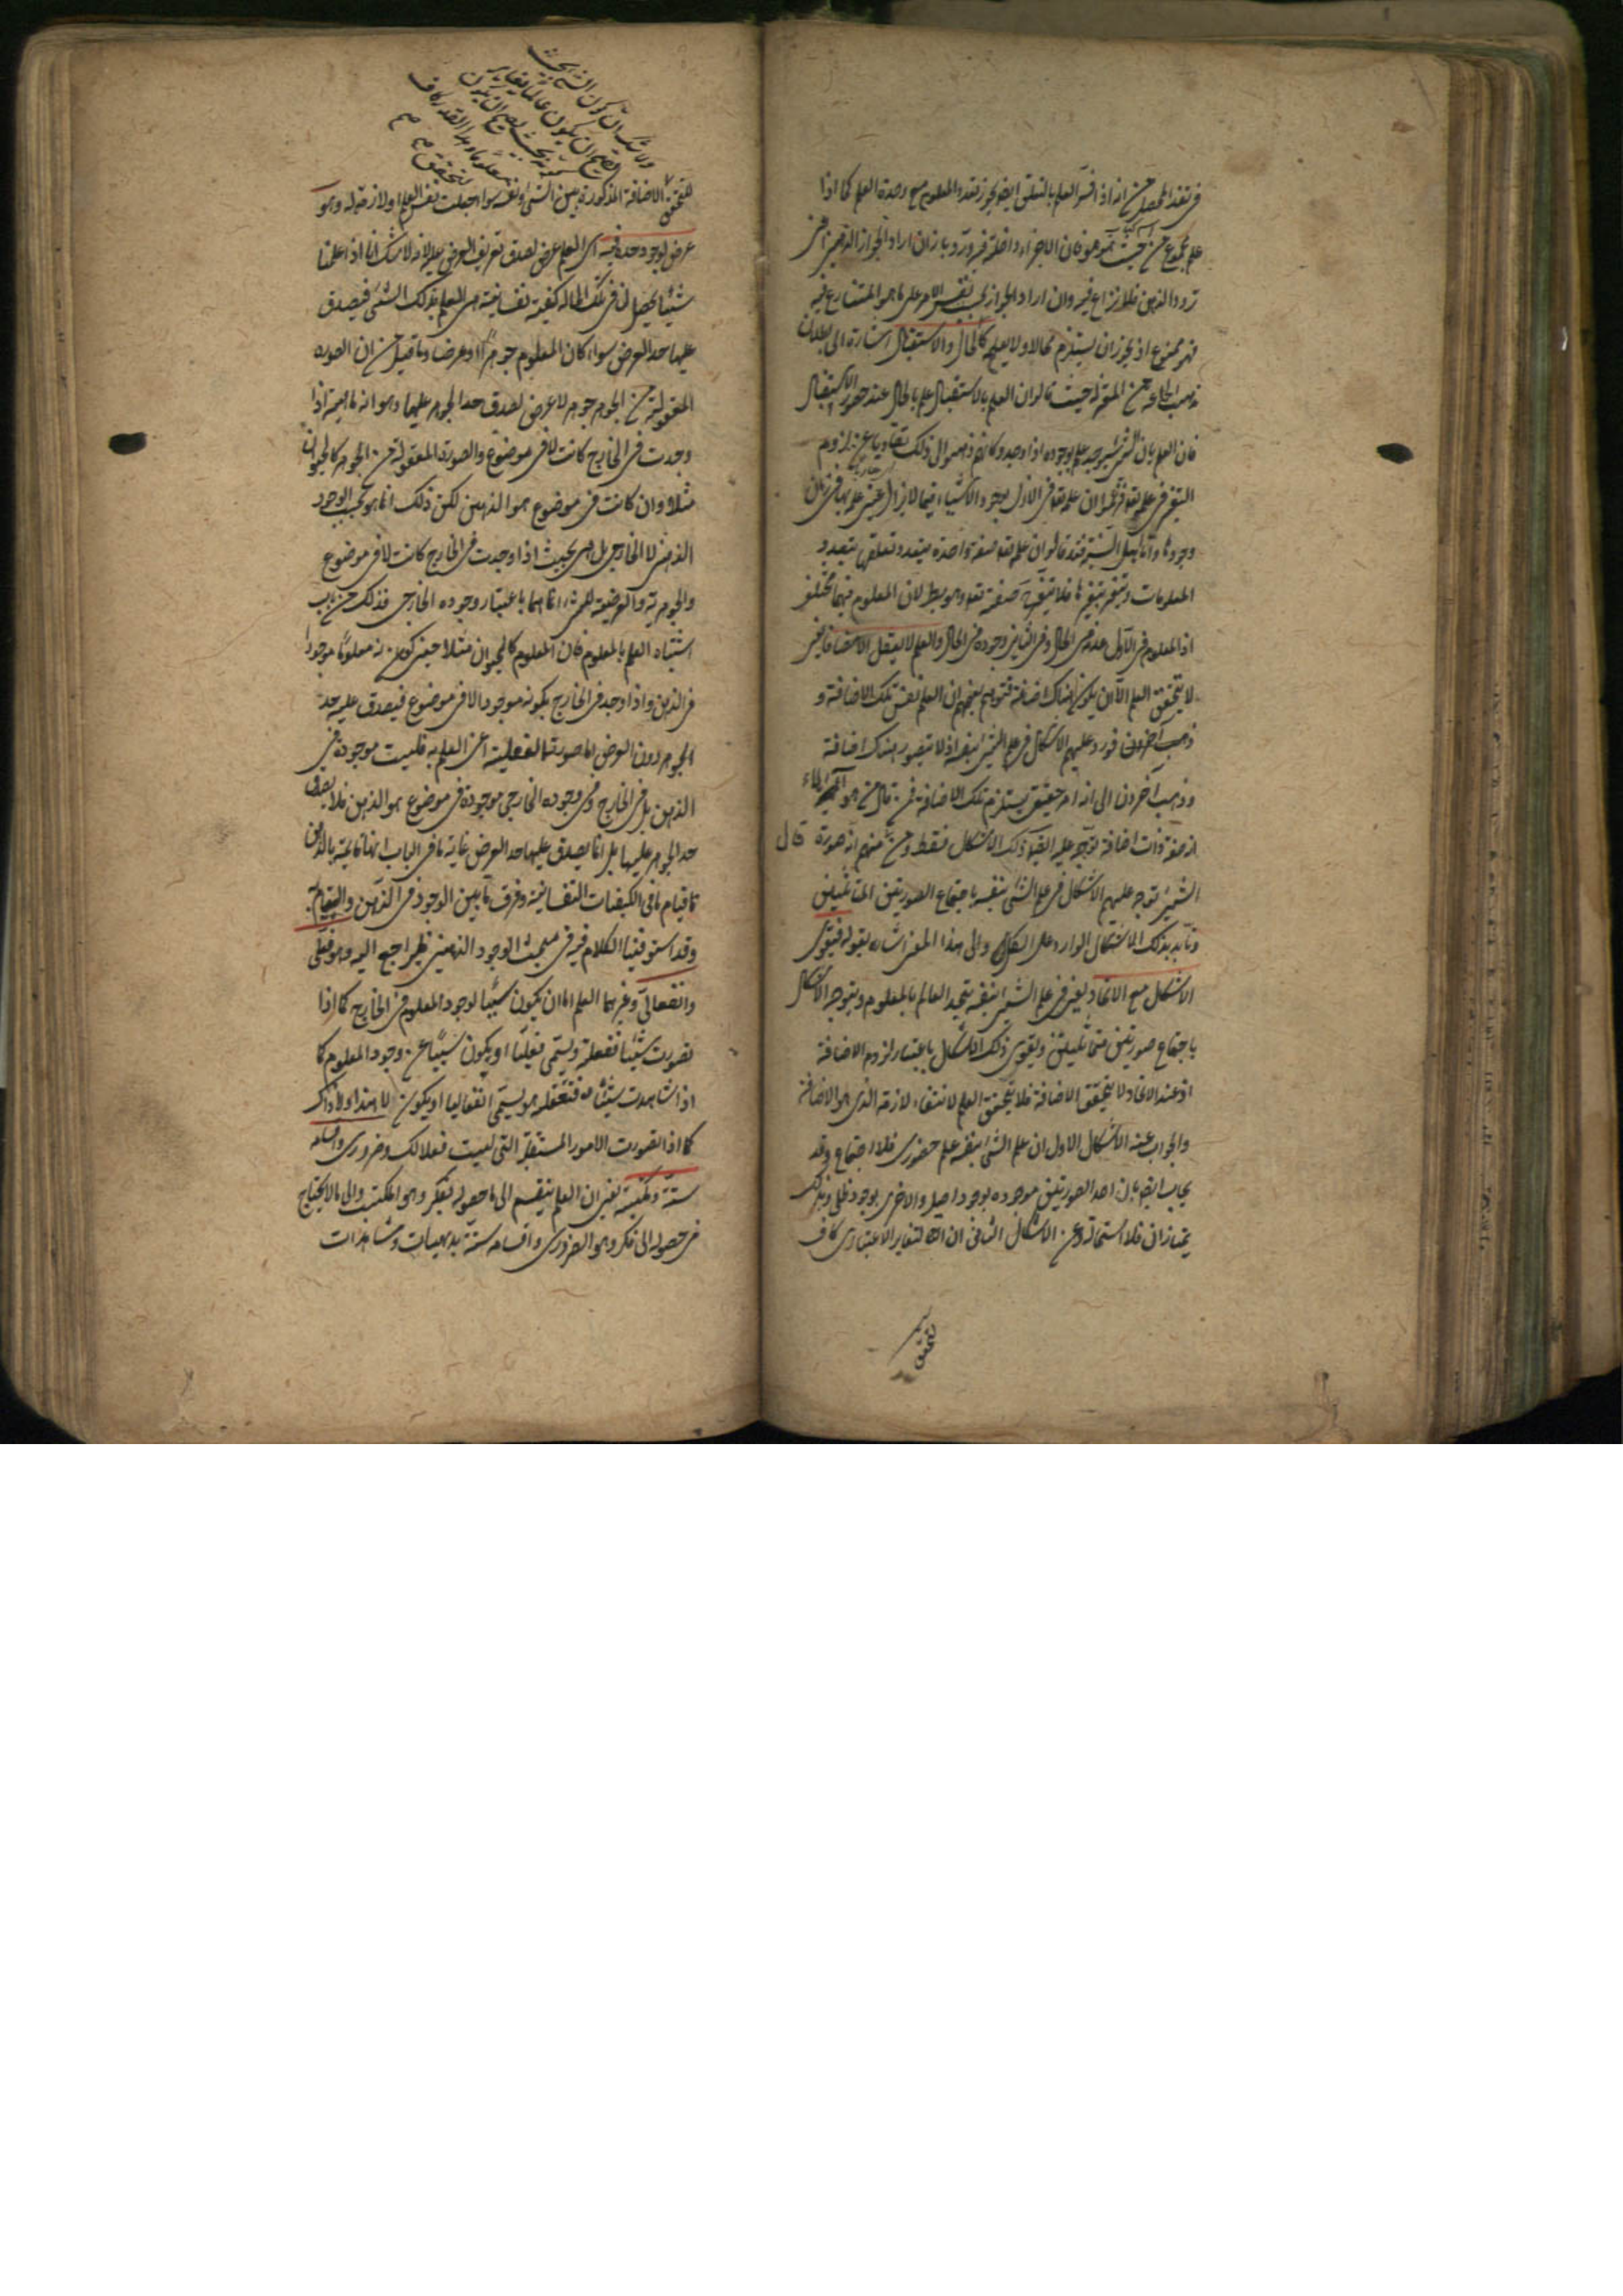 في نقد المحصل من انه اذا فسر العلم بالتعلق ايضا يجوز تعدد المعلوم مع وحدة العلم كما اذا
علم مجموع من حيث هو هو فان الاجزاء داخلة فيه ورد بانه ان اراد بالجواز الذهني اعني
تردد الذهن فلا نزاع فيه وان اراد الجواز بحسب نفس الامر على ما هو المتنازع فيه
فهو ممنوع اذ يجوز ان يستلزم محالا ولا يعلم كالحال والاستقبال اشارة الى بطلان
مذهب جماعة من المعتزلة حيث قالوا ان العلم بالاستقبال علم بالحال عند حضور الاستقبال
فان العلم بان الشيء سيوجد علم بوجوده اذا وجد وكانهم ذهبوا الى ذلك تفاديا عن لزوم
التغير في علمه تعالى ان علمه تعالى في الازل بوجود الاشياء فيما لا يزال عين علمه بها في زمان
وجودها واما اهل السنة فقد قالوا ان علمه تعالى صفة واحدة يتعدد تعلقها بتعدد
المعلومات ويتغير بتغيرها فلا تتغير صفته تعالى وهو بط لان المعلوم فيهما مختلف
اذ المعلوم في الاول عدمه في الحال وفي الثاني وجوده في الحال والعلم لا يعقل الا مضافا يعني
لا يتحقق العلم الا ان يكون هناك اضافة فتوهم بعضهم ان العلم نفس تلك الاضافة و
ذهب آخرون فورد عليهم الاشكال في علم الشيء بنفسه اذ لا يتصور هناك اضافة
وذهب آخرون الى انه امر حقيقي يستلزم تلك الاضافة فمن قال من هؤلاء
انه صفة ذات اضافة توجه عليه ايضا ذلك الاشكال فقط ومن قال منهم انه صورة
الشيء توجه عليهم الاشكال في علم الشيء بنفسه باجتماع الصورتين المتماثلتين
وتأيد بذلك الاشكال الوارد على الكل والى هذا المعنى اشار بقوله فيقوى
الاشكال مع الاتحاد يعني في علم الشيء بنفسه يتحد العالم بالمعلوم ويتوجه الاشكال
باجتماع صورتين متماثلتين ويقوى ذلك الاشكال باعتبار لزوم الاضافة
اذ عند الاتحاد لا يتحقق الاضافة فلا يتحقق العلم لانتفاء لازمه الذي هو الاضافة
والجواب عنه الاشكال الاول ان علم الشيء بنفسه علم حضوري فلا اجتماع وقد
يجاب ايضا بان احد الصورتين موجودة بوجود اصيل والاخرى بوجود ظلي وبذلك
يمتازان فلا استحالة وعن الاشكال الثاني ان التغاير الاعتباري كاف
لتحقق
ولا شك ان كون الشيء بحيث
يصح ان يكون عالما يغاير
كونه بحيث يصح ان يكون
معلوما وهذا القدر كاف
لتحقق صح
لتحقق الاضافة المذكورة بين الشيء ونفسه سواء جعلت نفس العلم او لازمة له وهو
عرض لوجود حده فيه اي العلم عرض لصدق تعريف العرض عليه لانه لا شك انا اذا علمنا
شيئا يحصل لنا في تلك الحالة كيفية نفسانية هي العلم بذلك الشيء فيصدق
عليها حد العرض سواء كان المعلوم جوهرا او عرضا وما قيل من ان الصورة
المعقولة من الجوهر جوهر لا عرض لصدق حد الجوهر عليها وهو انه ماهية اذا
وجدت في الخارج كانت لا في موضوع والصورة المعقولة من الجوهر كالحيوان
مثلا وان كانت في موضوع هو الذهن لكن ذلك انما هو بحسب الوجود
الذهني لا الخارجي بل هي بحيث اذا وجدت في الخارج كانت لا في موضوع
والجوهرية والعرضية للشيء انما هما باعتبار وجوده الخارجي فذلك من باب
اشتباه العلم بالمعلوم فان المعلوم كالحيوان مثلا حين كونه معلوما موجود
في الذهن واذا وجد في الخارج يكون موجودا لا في موضوع فيصدق عليه حد
الجوهر دون العرض اما صورته العقلية اعني العلم به فليست موجودة في
الذهن بل في الخارج وفي وجوده الخارجي موجودة في موضوع هو الذهن فلا يصدق
حد الجوهر عليها بل انما يصدق عليها حد العرض غاية ما في الباب انها قائمة بالذهن
كقيام باقي الكيفيات النفسانية وفرق ما بين الوجود في الذهن والقيام به
وقد استوفينا الكلام فيه في مبحث الوجود الذهني فليراجع اليه وهو فعلي
وانفعالي وغيرهما العلم اما ان يكون سببا لوجود المعلوم في الخارج كما اذا
تصورت شيئا ففعلته ويسمى فعليا او يكون مسببا عن وجود المعلوم كما
اذا شاهدت شيئا فتعقلته ويسمى انفعاليا او يكون لا هذا ولا ذاك
كما اذا تصورت الامور المستقبلة التي ليست فعلا لك وضروري واقسامه
ستة ومكتسب يعني ان العلم ينقسم الى ما حصوله بفكر وهو المكتسب والى ما لا يحتاج
في حصوله الى فكر وهو الضروري واقسامه ستة بديهيات ومشاهدات